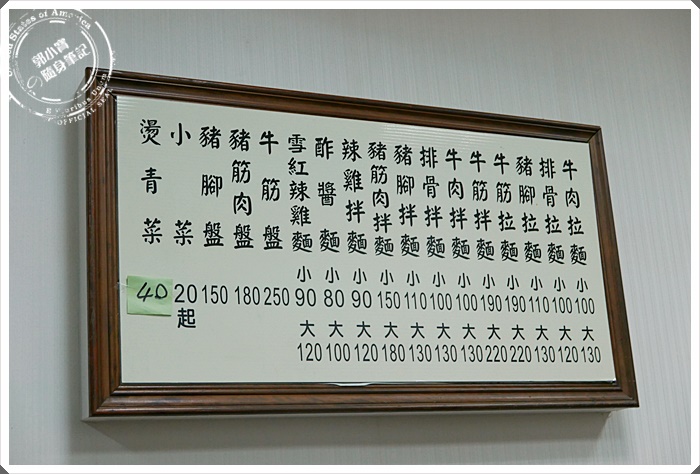 牛肉拉麵 小100 大130
排骨拉麵 小100 大120
豬腳拉麵 小110 大130
牛筋拉麵 小190 大220
牛筋拌麵 小190 大220
牛肉拌麵 小100 大130
排骨拌麵 小100 大130
豬腳拌麵 小110 大130
豬筋肉拌麵 小150 大180
辣雞拌麵 小90 大120
酢醬麵 小80 大100
雪紅辣雞麵 小90 大120
牛筋盤 250
豬筋肉盤 180
豬腳盤 150
小菜 20起
燙青菜 40
郭小寶
の隨身筆記